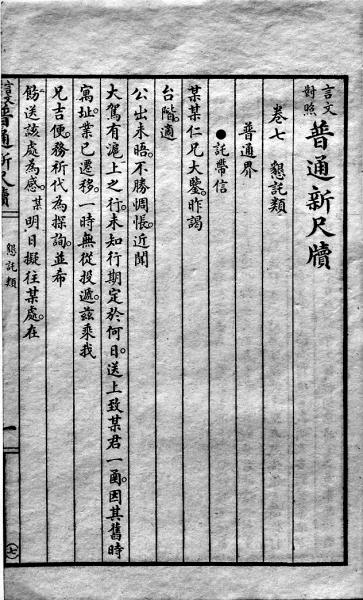 言文對照 普通新尺牘
卷七 懇託類
普通界
●託帶信
某某仁兄大鑒。昨謁
台階。適
公出未晤。不勝惆悵。近聞
大駕有滬上之行。未知行期定於何日。送上致某君一函。因其舊時
寓址。業已遷移。一時無從投遞。茲乘我
兄吉便。務祈代為探詢。並希
飭送該處為感。某明日擬往某處。在
言文 普通新尺牘
懇託類
一
七